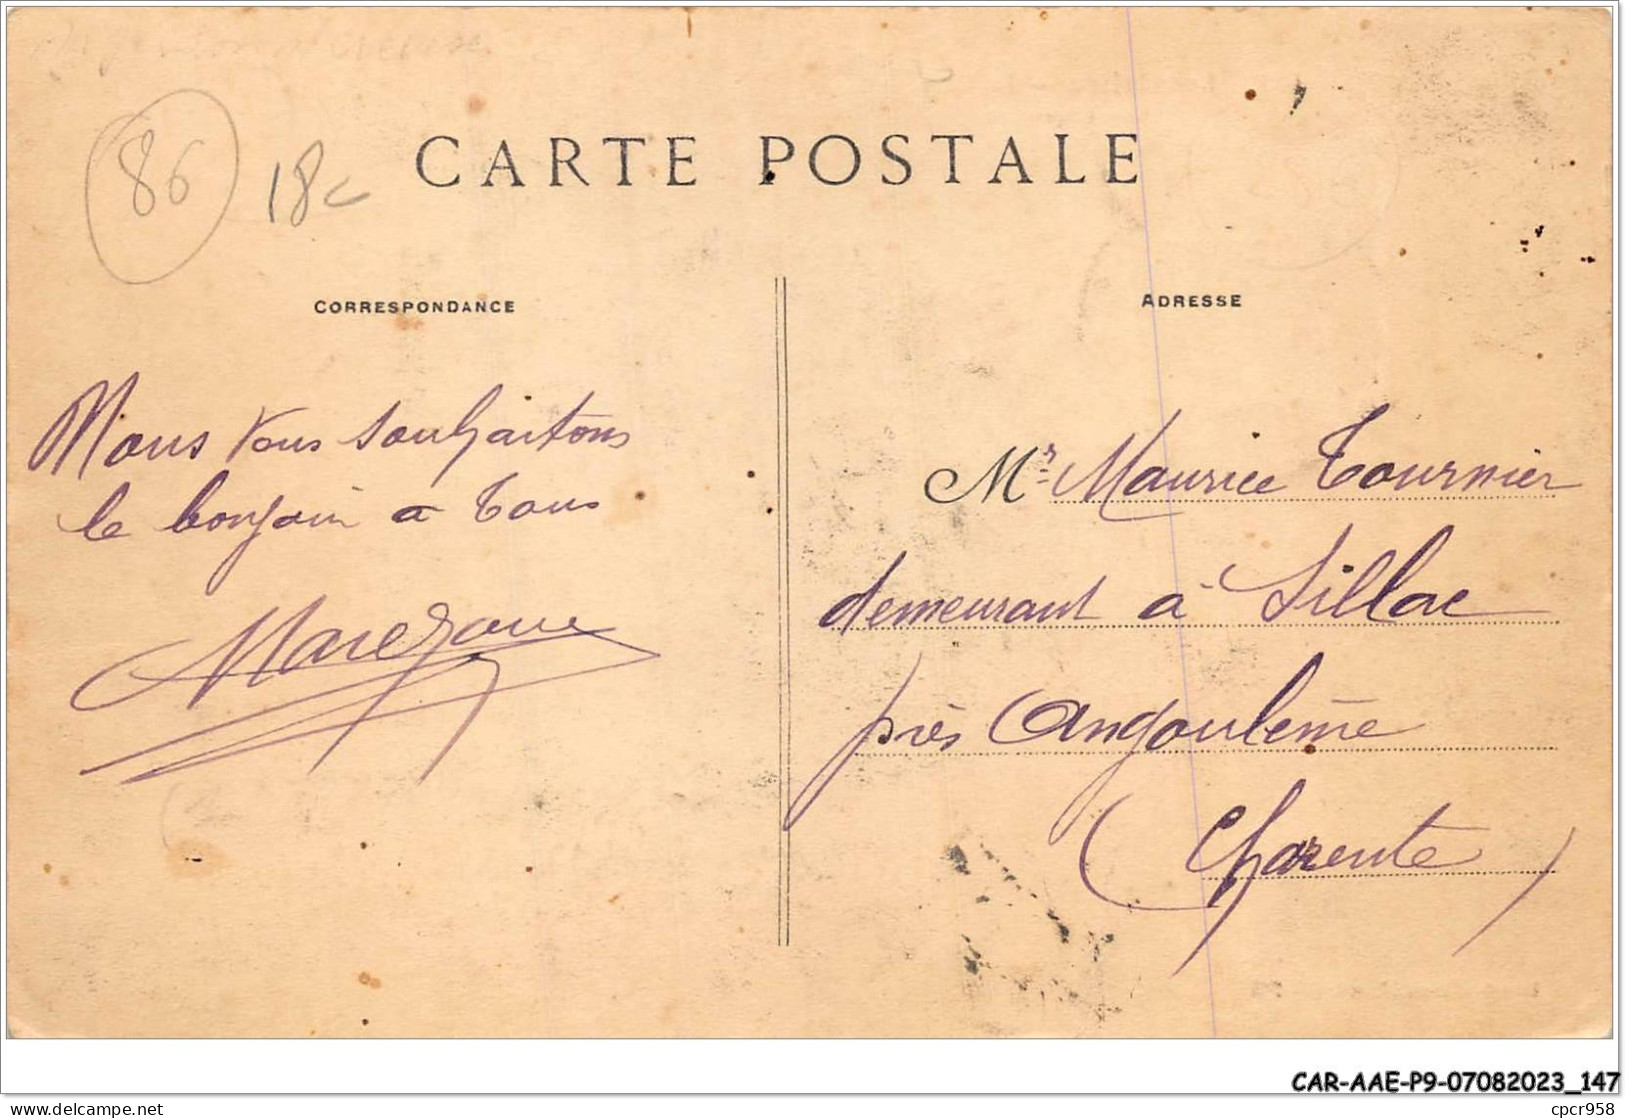 86
18c
CARTE POSTALE
CORRESPONDANCE
ADRESSE
Nous vous souhaitons
le bonjour a tous
Mr Maurice Tournier
demeurant à Sillac
près Angoulême
(Charente)
CAR-AAE-P9-07082023_147
www.delcampe.net
cpcr958